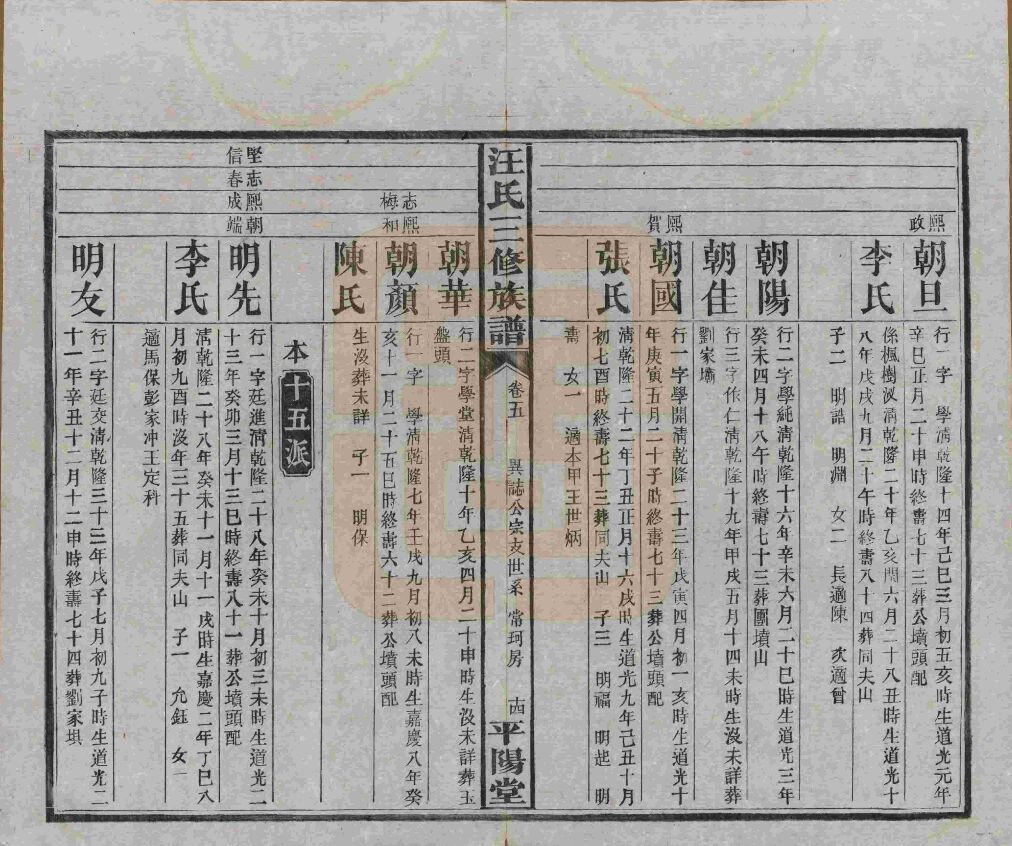 熙政
朝旦
行一字 學清乾隆十四年己巳三月初五亥時生道光元年
辛巳正月二十申時終壽七十三葬公墳頭配
李氏
係楓樹㘰清乾隆二十年乙亥閏六月二十八丑時生道光十
八年戊戌九月二十午時終壽八十四葬同夫山
子二 明誥 明淵 女二 長適陳 次適曾
朝陽
行二字學純清乾隆十六年辛未六月二十巳時生道光三年
癸未四月十八午時終壽七十三葬團墳山
朝佳
行三字作仁清乾隆十九年甲戌五月十四未時生沒未詳葬
劉家壩
熙賀
朝國
行一字學開清乾隆二十三年戊寅四月初一亥時生道光十
年庚寅五月二十子時終壽七十三葬公墳頭配
張氏
清乾隆二十二年丁丑正月十六戌時生道光九年己丑十月
初七酉時終壽七十三葬同夫山 子三 明福 明起 明
壽 女一 適本甲王世炳
汪氏三修族譜
卷五
異誌公宗支世系 常珂房
十四
平陽堂
朝華
行二字學堂清乾隆十年乙亥四月二十申時生沒未詳葬玉
盤頭
志熙
梅和
朝顏
行一字 學清乾隆七年壬戌九月初八未時生嘉慶八年癸
亥十一月二十五巳時終壽六十二葬公墳頭配
陳氏
生沒葬未詳 子一 明保
本十五派
堅志熙朝
信春成端
明先
行一字廷進清乾隆二十八年癸未十月初三未時生道光二
十三年癸卯三月十三巳時終壽八十一葬公墳頭配
李氏
清乾隆二十八年癸未十一月十一戌時生嘉慶二年丁巳八
月初九酉時沒年三十五葬同夫山 子一 允鈺 女一
適馬保彭家冲王定科
明友
行二字廷交清乾隆三十三年戊子七月初九子時生道光二
十一年辛丑十二月十二申時終壽七十四葬劉家垻